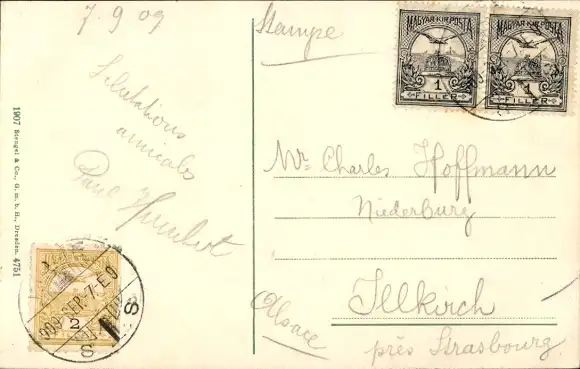 7.9.09
Stampe
MAGYAR·KIR·POSTA
1
FILLER
MAGYAR·KIR·POSTA
1
FILLER
Salutations
amicales
Paul Humbert
Mr. Charles Hoffmann
Niederburg
Illkirch
Alsace
près Strasbourg
1907 Stengel & Co., G. m. b. H., Dresden. 4751
909 SEP.-7-E 9
2
S
S